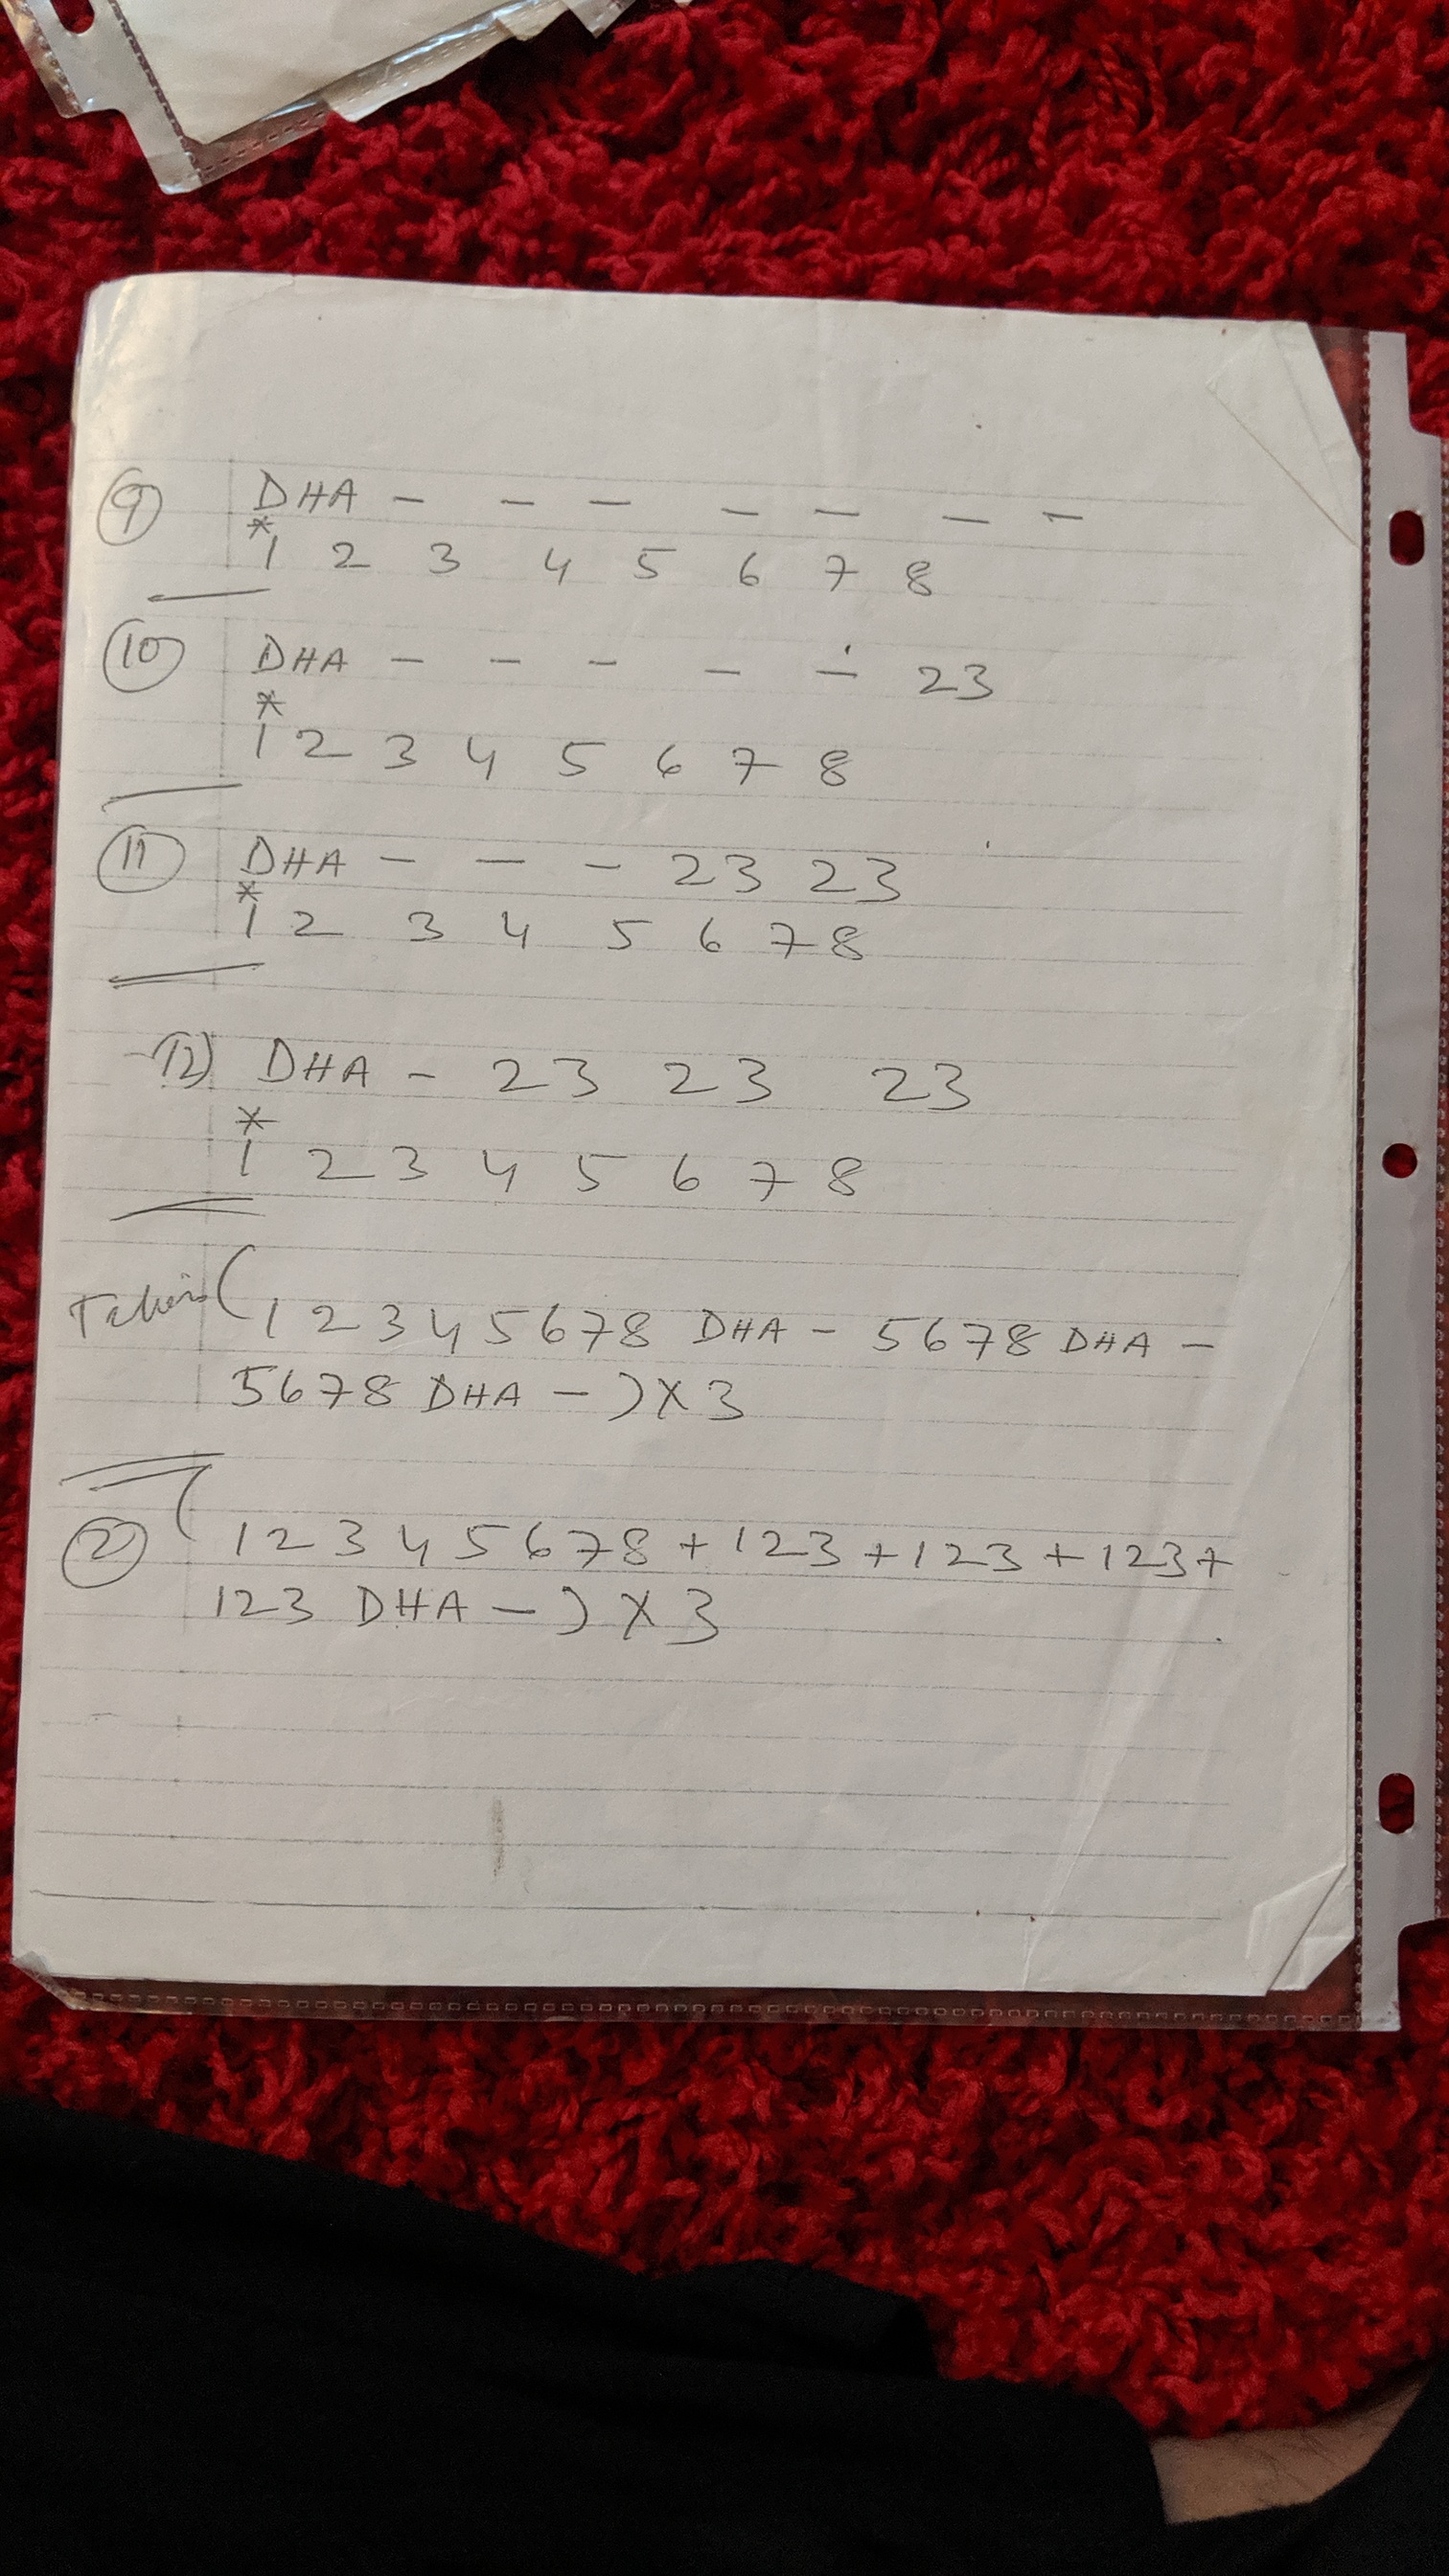 9 DHA - - - - - - -
* 1 2 3 4 5 6 7 8
10 DHA - - - - - 23
*
1 2 3 4 5 6 7 8
11 DHA - - - 23 23
* 1 2 3 4 5 6 7 8
12) DHA - 23 23 23
*
1 2 3 4 5 6 7 8
(1 2 3 4 5 6 7 8 DHA - 5678 DHA -
5678 DHA - ) X 3
2 ( 1 2 3 4 5 6 7 8 + 123 + 123 + 123 +
123 DHA - ) X 3